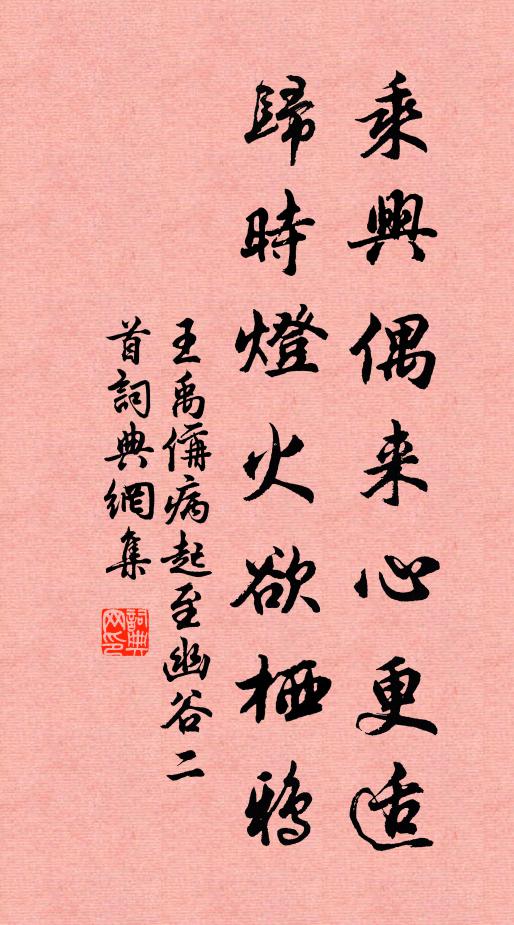 乘興偶来心更适
歸時燈火欲栖鴉
王禹偁病起至幽谷二
首詞典網集
詞典網印